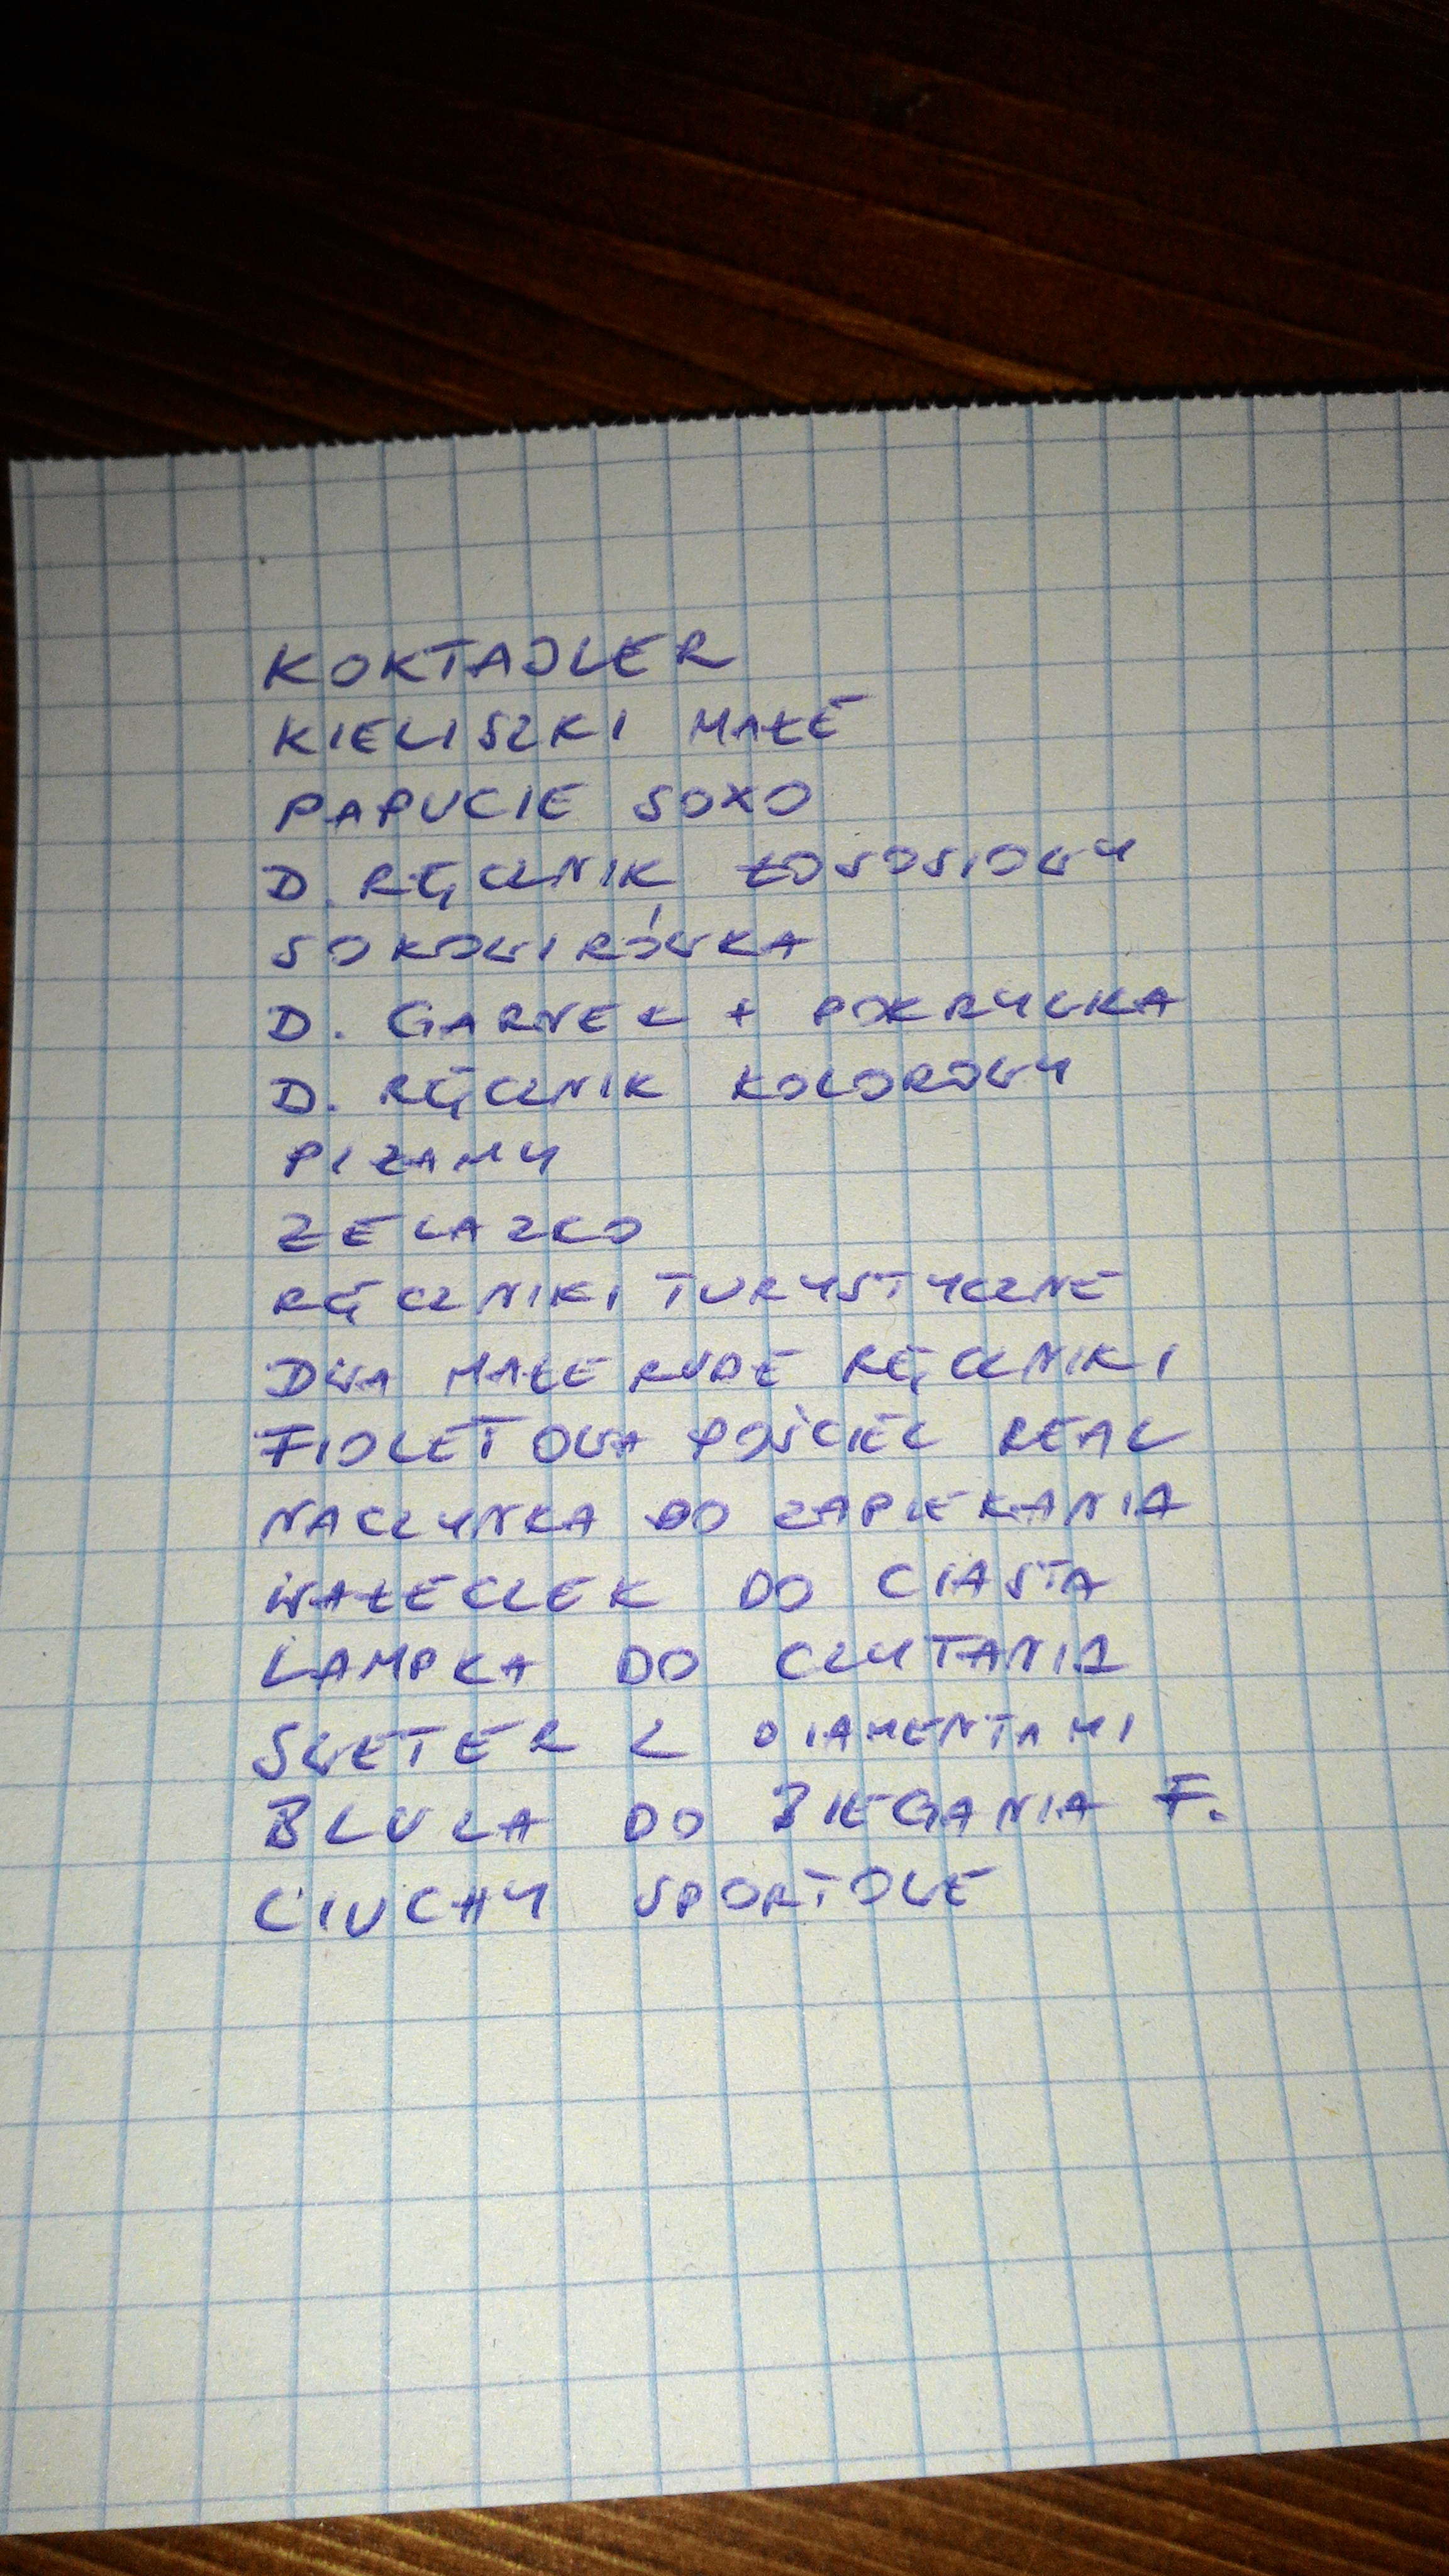 KOKTAJLER
KIELISZKI MAŁE
PAPUCIE SOXO
D. RĘCZNIK ŁOSOSIOWY
SOKOWIRÓWKA
D. GARNEK + POKRYWKA
D. RĘCZNIK KOLOROWY
PIŻAMY
ŻELAZKO
RĘCZNIKI TURYSTYCZNE
DWA MAŁE RUDE RĘCZNIKI
FIOLETOWA POŚCIEL REAL
NACZYNKA DO ZAPIEKANIA
WAŁECZEK DO CIASTA
LAMPKA DO CZYTANIA
SWETER Z DIAMENTAMI
BLUZA DO BIEGANIA F.
CIUCHY SPORTOWE